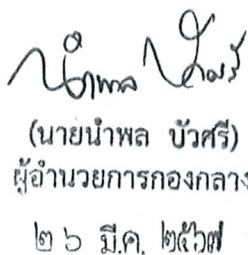 นำพล บัวศรี
(นายนำพล บัวศรี)
ผู้อำนวยการกองกลาง
๒๖ มี.ค. ๒๕๖๗